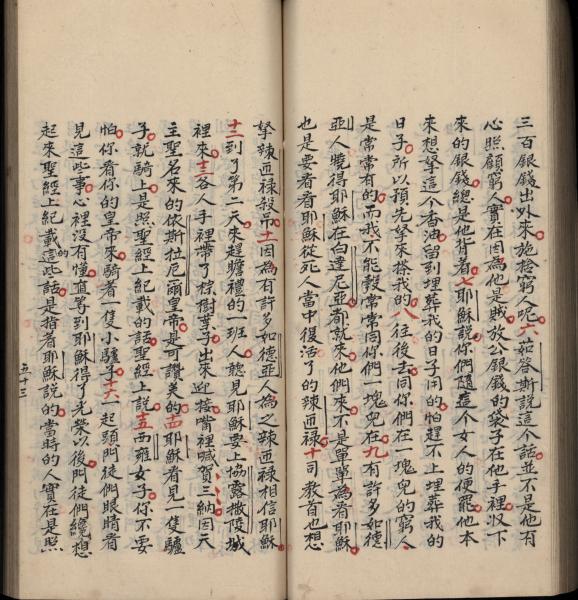 三百銀錢出外來施捨窮人呢六茹荅斯說這个話並不是他有
心照顧窮人實在因為他是賊放公銀錢的袋子在他手裡収下
來的銀錢總是他背着七耶穌說你們隨這个女人的便罷他本
來想拏這个香油留到埋葬我的日子用的怕趕不上埋葬我的
日子所以預先拏來搽我的八往後去同你們在一塊兒的窮人
是常常有的而我不能彀常常同你們一塊兒在九有許多如德
亞人曉得耶穌在白達尼亞都就來他們來不是單單為看耶穌
也是要看看耶穌從死人當中復活了的辣匝祿十司教首也想
拏辣匝祿殺吊十一因為有許多如德亞人為之辣匝祿相信耶穌
十二到了第二天來趕瞻禮的一班人聽見耶穌要上協露撒陵城
裡來十三各人手裡帶了棕樹葉子出來迎接嘴裡喊賀三納因天
主聖名來的依斯拉尼爾皇帝是可讚美的十四耶穌看見一隻驢
子就騎上是照聖經上紀載的話聖經上說十五西雍女子你不要
怕你看你的皇帝來騎着一隻小驢子十六一起頭門徒們眼睛看
見這些事心裡沒有懂直等到耶穌得了光榮以後門徒們纔想
起來聖經上紀載的這些話是指着耶穌說的當時的人實在是照
五十三